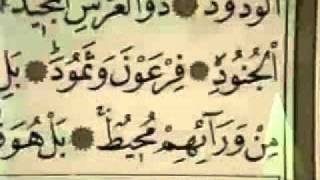 الْوَدُودُ ۞ ذُو الْعَرْشِ الْمَجِيدُ
الْجُنُودِ ۞ فِرْعَوْنَ وَثَمُودَ ۞ بَلِ
مِنْ وَرَآئِهِمْ مُحِيطٌ ۞ بَلْ هُوَ